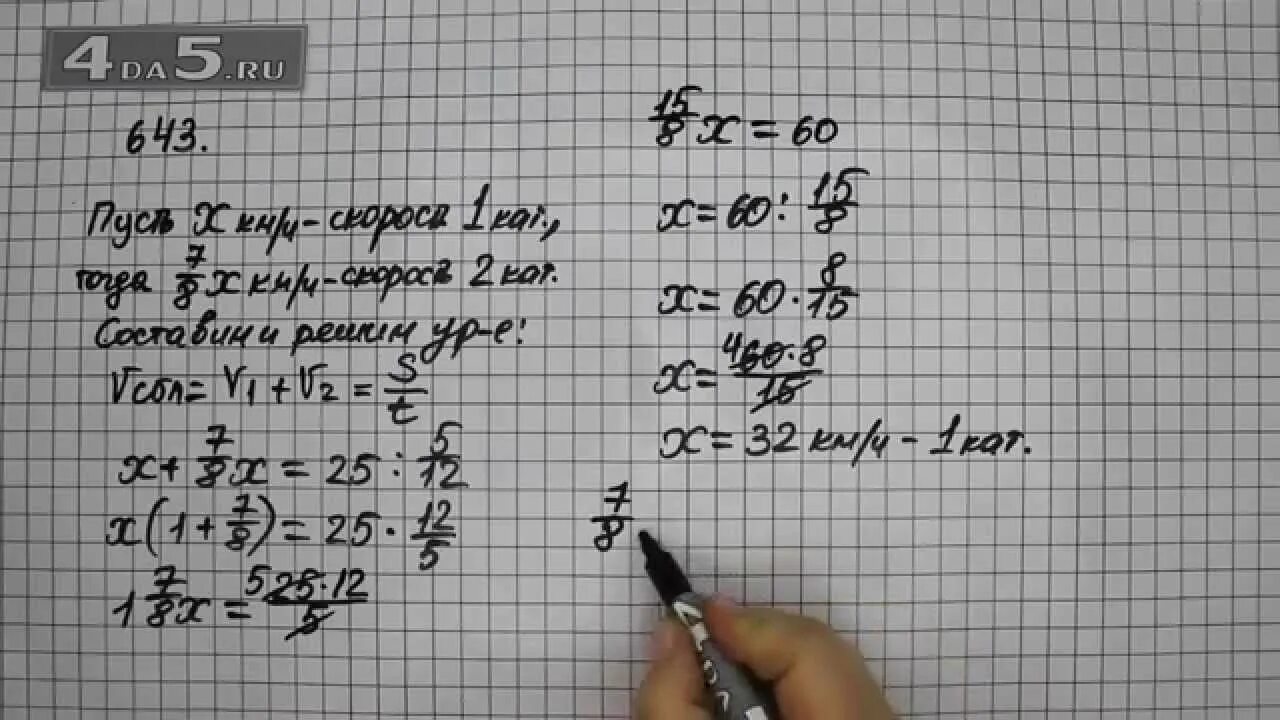 4DA5.RU
643.
Пусть x км/ч - скорость 1 кат.,
тогда 7/8 x км/ч - скорость 2 кат.
Составим и решим ур-е:
Vсбл = V1 + V2 = S/t
x + 7/8 x = 25 : 5/12
x(1 + 7/8) = 25 · 12/5
1 7/8 x = 5 25·12/5
15/8 x = 60
x = 60 : 15/8
x = 60 · 8/15
x = 4 60·8/15
x = 32 км/ч - 1 кат.
7/8